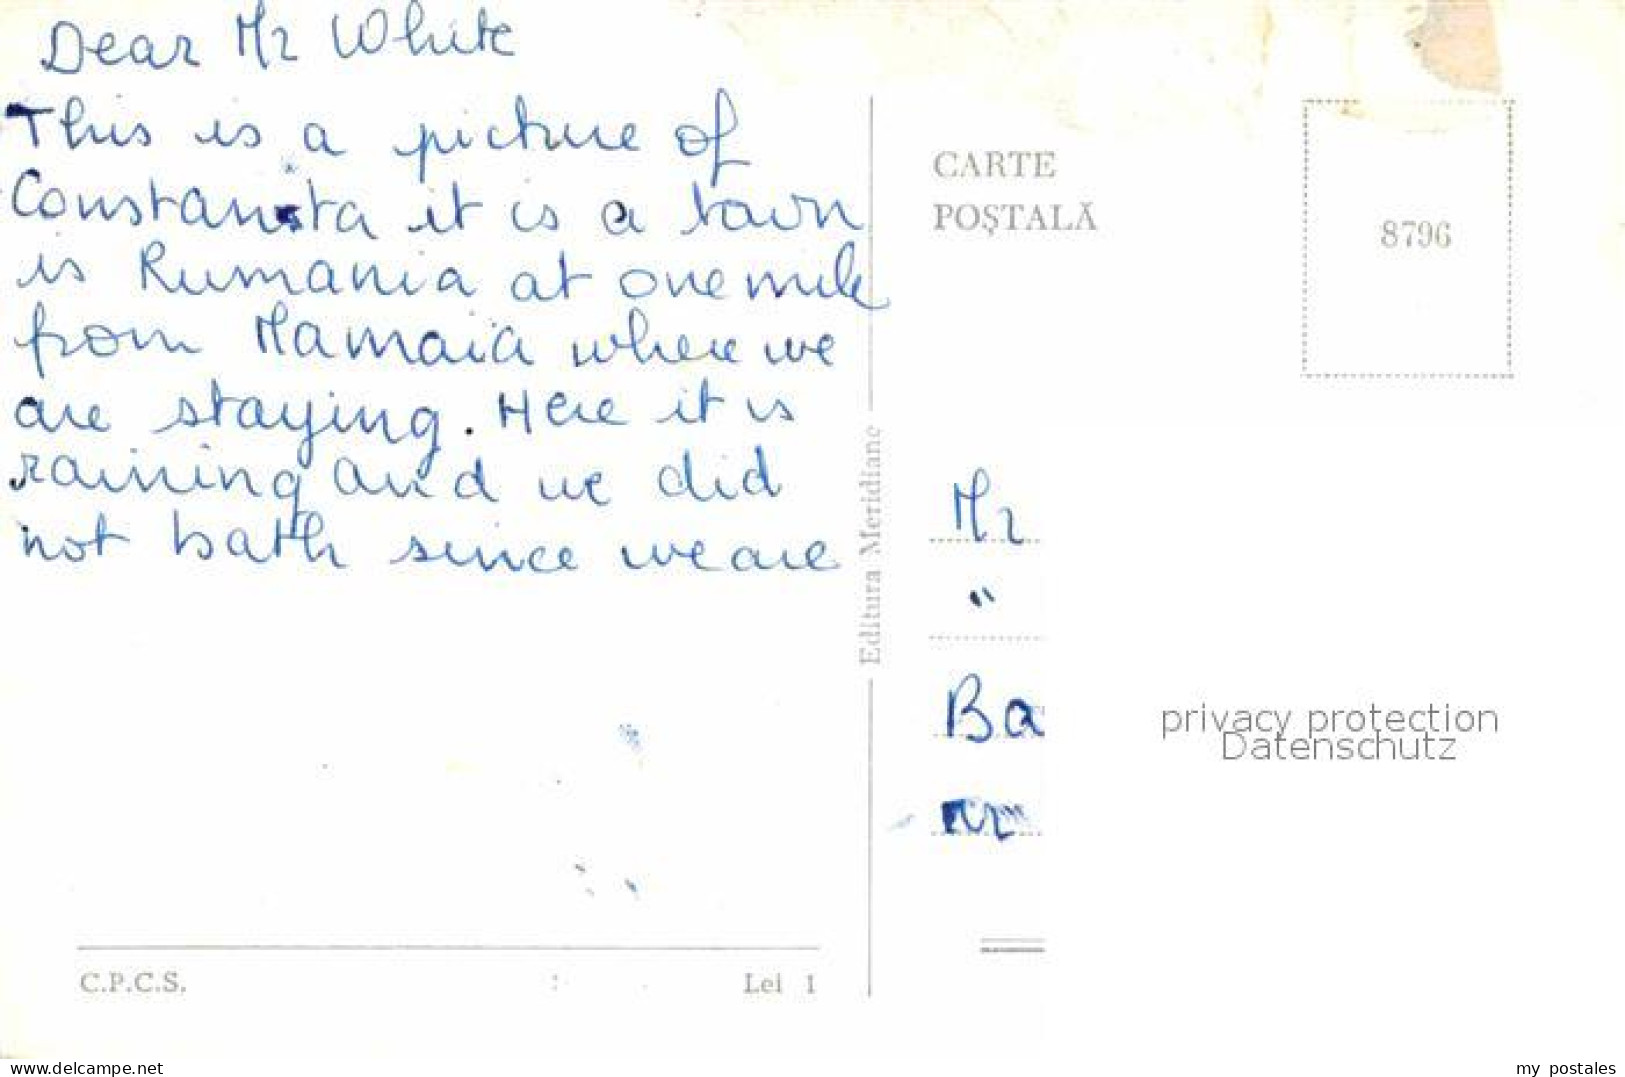 Dear Mr White
This is a picture of
Constansta it is a town
is Rumania at one mile
from Mamaïa where we
are staying. Here it is
raining and we did
not bath since we are
C.P.C.S.
Lei 1
Editura Meridiane
CARTE
POȘTALĂ
8796
Mr
"
Ba
privacy protection
Datenschutz
https://www.delcampe.net
my_postales